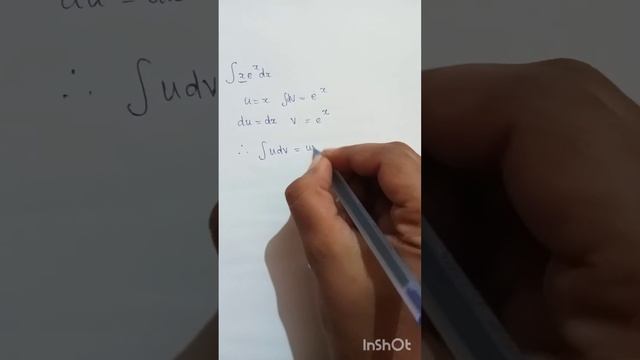 ∫xe^x dx
u = x ∫dv = e^x
du = dx v = e^x
∴ ∫udv = u
InShOt